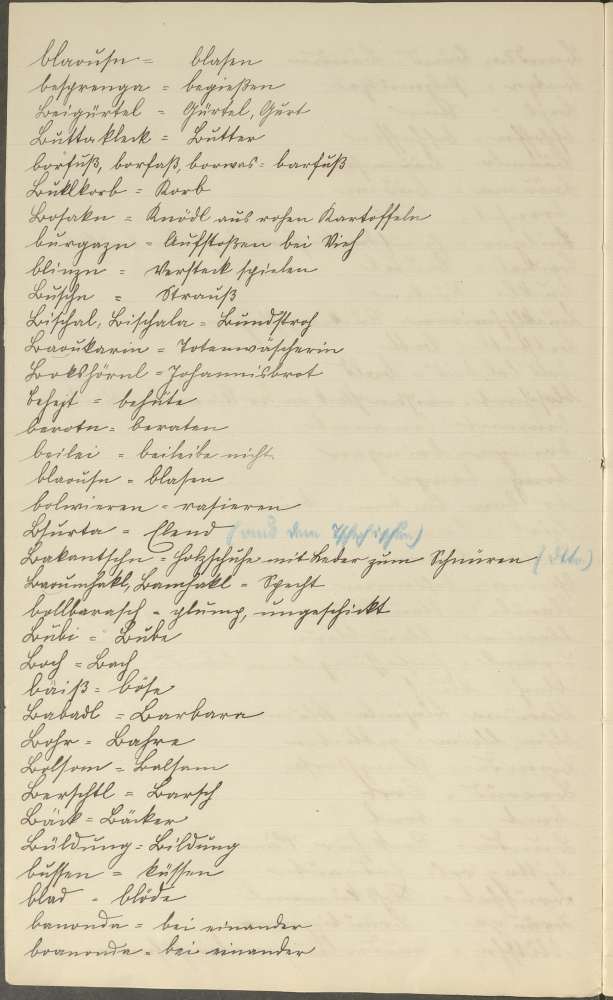 blaousn = blasen
besprenga = begießen
Beigürtel = Gürtel, Gurt
Buttakleck = Butter
borfuß, borfaß, borwas = barfuß
Buklkorb = Korb
Bosakn = Knödl aus rohen Kartoffeln
burgazn = Aufstoßen bei Vieh
blinzn = Versteck spielen
Buschn = Strauß
Bischal, Bischala = Bundstroh
Baoukarin = Totenwäscherin
Bokshörnl = Johannisbrot
behept = behüte
berotn = beraten
beilei = beileibe nicht
blaousn = blasen
bolwieren = rasieren
Bsurta = Elend (aus dem Tschechischen)
Bakantschn = Holzschuhe mit Leder zum Schnüren (dtto.)
Baoumhakl, Bamhakl = Specht
bollbarasch = plump, ungeschickt
Bübi = Bube
Boch = Bach
bäiß = böse
Babadl = Barbara
Bohr = Bahre
Bolsom = Balsam
Berschtl = Barsch
Bäck = Bäcker
Büldung = Bildung
bussen = küssen
blad = blöde
banonda = bei einander
boanonda = bei einander